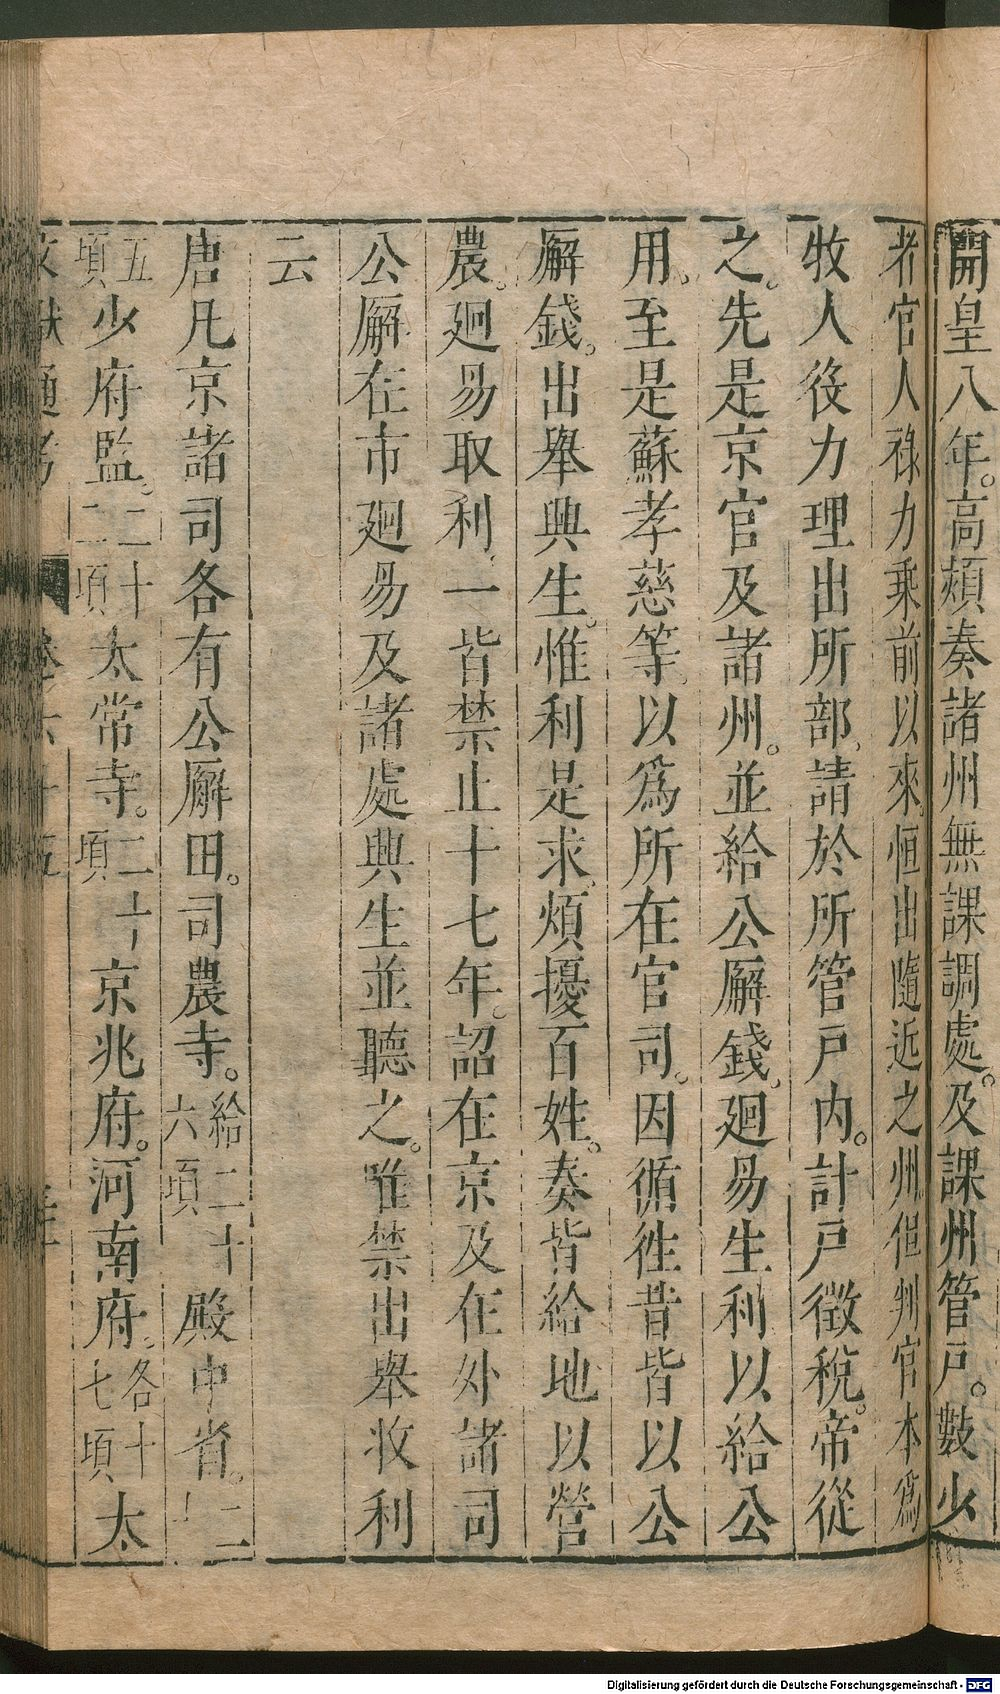 開皇八年。高熲奏諸州無課調處。及課州管戶。數少
者官人祿力乘前以來。恒出隨近之州但判官本爲
牧人役力理出所部。請於所管戶內。計戶徵稅。帝從
之。先是京官及諸州。並給公廨錢。廻易生利以給公
用。至是蘇孝慈等。以爲所在官司。因循徃昔皆以公
廨錢。出舉興生。惟利是求。煩擾百姓。奏皆給地以營
農。廻易取利。一皆禁止十七年。詔在京及在外諸司
公廨在市廻易及諸處興生並聽之。唯禁出舉收利
云
唐凡京諸司各有公廨田。司農寺。給二十六頃殿中省。二
五頃少府監。二十二頃太常寺。二十頃京兆府。河南府。各十七頃太
文獻通考 卷六十五
Digitalisierung gefördert durch die Deutsche Forschungsgemeinschaft - DFG